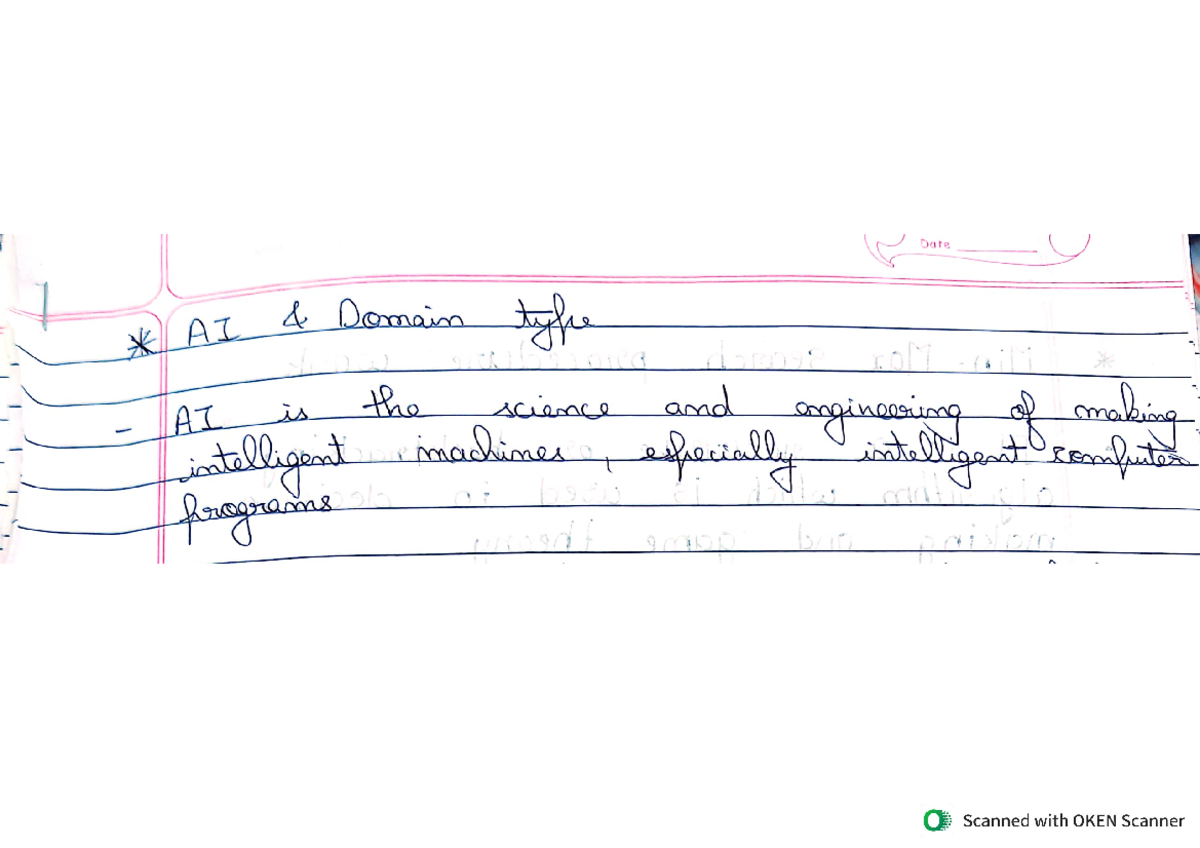 Date
* AI & Domain type
- AI is the science and engineering of making
intelligent machines, especially intelligent computer
programs
Scanned with OKEN Scanner